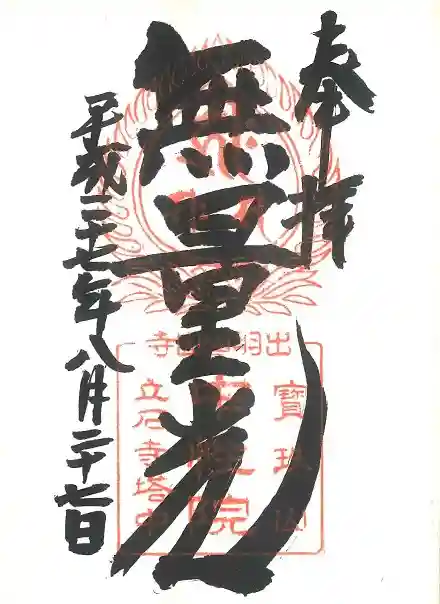 奉拝
無量光
平成二十七年八月二十七日
寶珠山
院
立石寺塔中